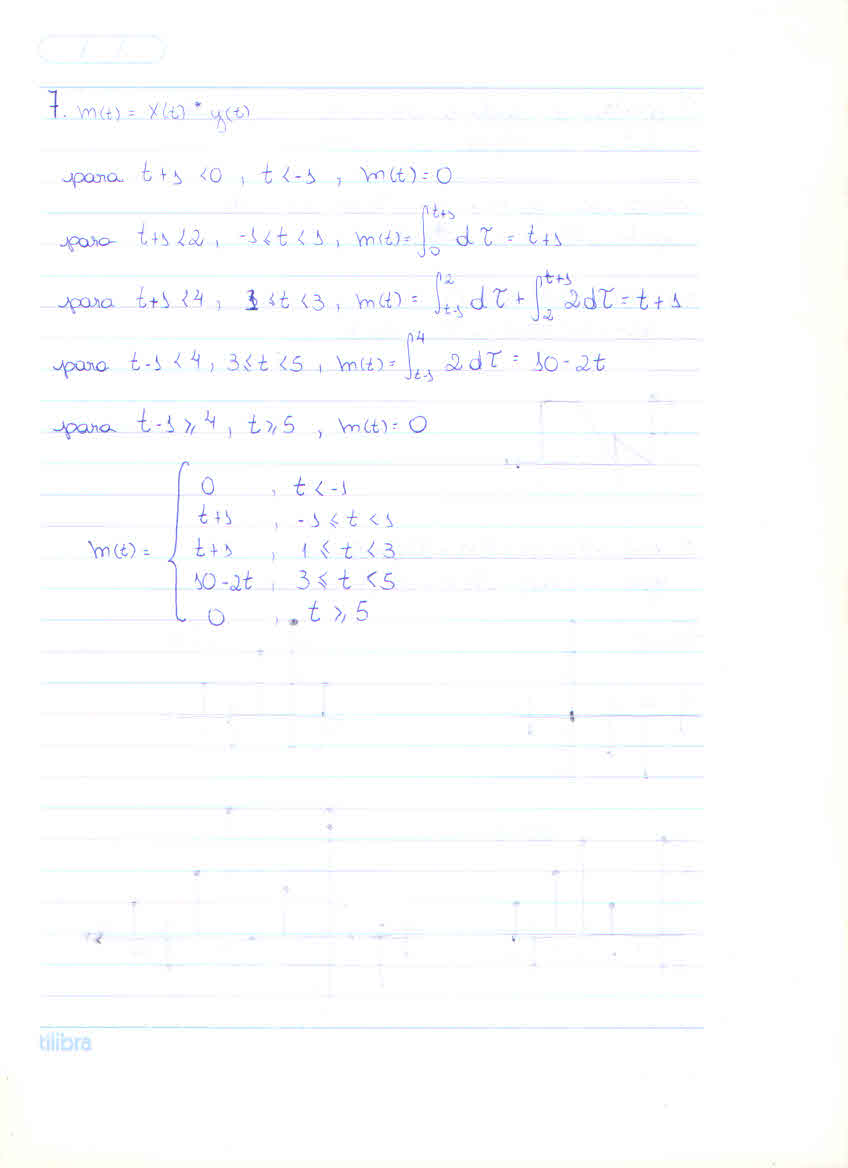 7. m(t) = x(t) * y(t)
para t+1 < 0 , t < -1 , m(t) = 0
para t+1 < 2 , -1 ≤ t < 1 , m(t) = ∫₀^{t+1} dτ = t+1
para t+1 < 4 , 1 ≤ t < 3 , m(t) = ∫_{t-1}^{2} dτ + ∫₂^{t+1} 2dτ = t+1
para t-1 < 4 , 3 ≤ t < 5 , m(t) = ∫_{t-1}^{4} 2dτ = 10-2t
para t-1 ≥ 4 , t ≥ 5 , m(t) = 0
0 , t < -1
t+1 , -1 ≤ t < 1
m(t) = { t+1 , 1 ≤ t < 3
10-2t , 3 ≤ t < 5
0 , t ≥ 5
tilibra